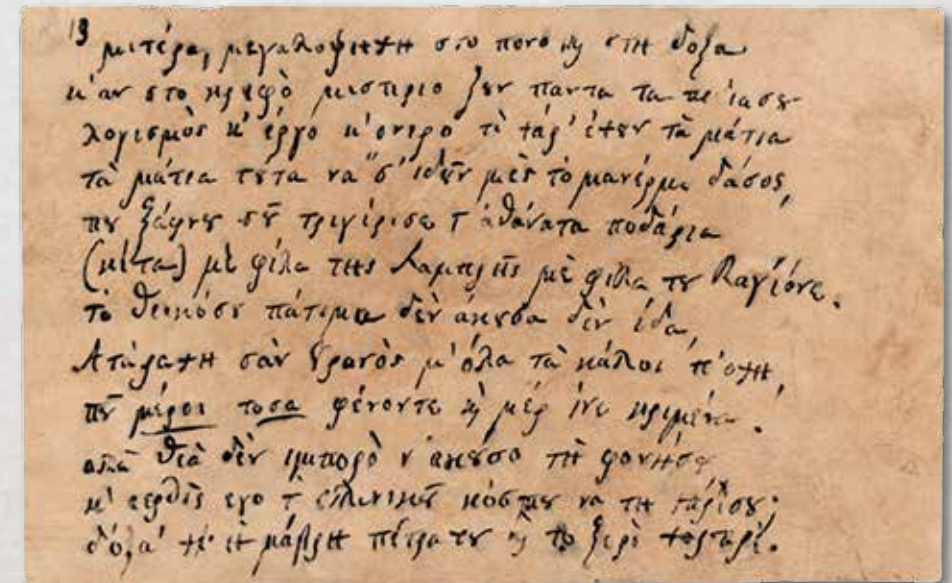 13 μιτέρα, μεγαλόψηχη στο πονο κ̀ στη δοξα
κ'αν στο κρεφὸ μιστιριο ζȣν παντα τα πεδιασȣ
λογισμὸς κ' έργο κ'ονιρο τὶ χάρ' έχȣν τὰ μάτια
τὰ μάτια τȣτα να σ' ιδȣ̃ν μὲς τὸ πανέρμο δάσος,
πȣ ξάφνȣ σȣ̃ τριγίρισε τ' αθάνατα ποδάρια
(κίτα) μὲ φίλα της Λαμπρῆς μὲ φιλα τȣ Βαγιόνε.
τὸ θεικόσȣ πάτιμα δὲν άκȣσα δὲν ίδα,
Ατάραχη σὰν ȣρανὸς μ' όλα τὰ κάλλη π' οχη,
πȣ̃ μέροι τοσα φένοντε κ̀ μέρ ίνε κριμένα.
αλλὰ θεὰ δὲν ημπορὸ ν' ακȣσο τὴ φονήσȣ
κ' εφθὶς εγο τ' ελινικȣ̃ κόσμȣ να τη χαρίσο;
δόξα' χ' η μάβρη πέτρα τȣ κ̀ το ξερὸ χορτάρι.